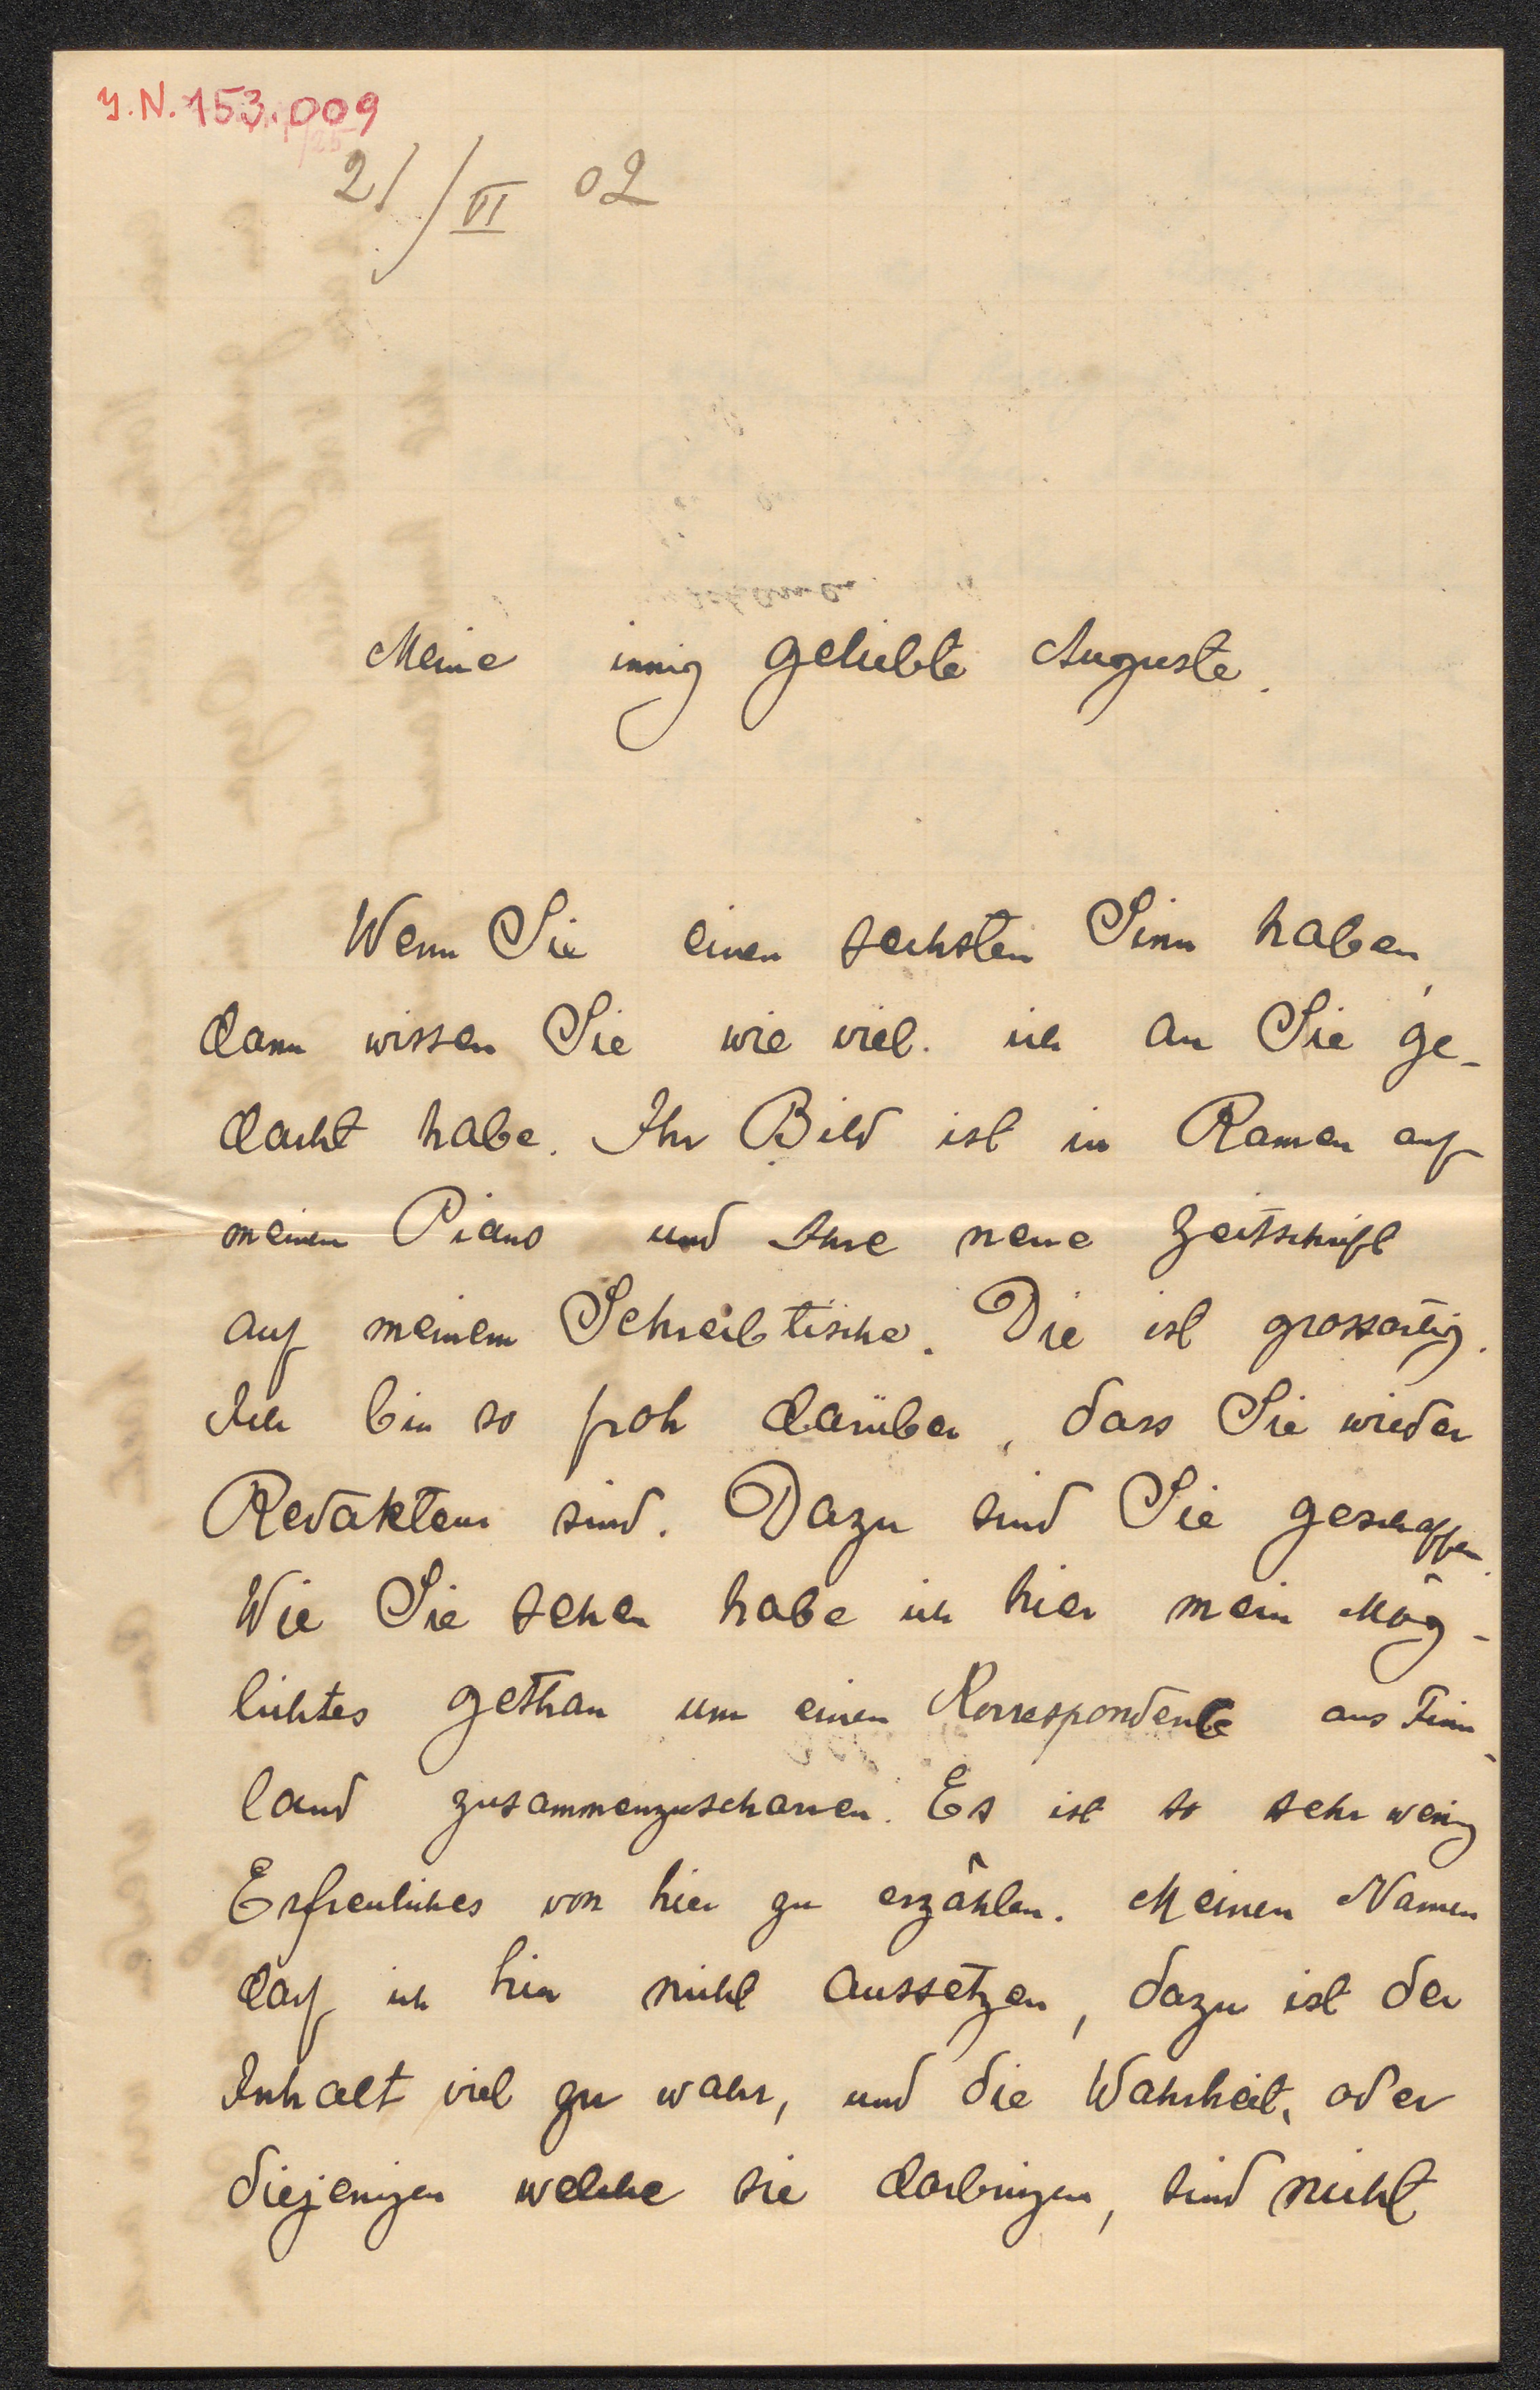 J.N. 153.009
21/VI 02
Meine innig geliebte Auguste.
Wenn Sie einen sechsten Sinn haben,
dann wissen Sie wie viel ich an Sie ge-
dacht habe. Ihr Bild ist in Ramen auf
meinem Piano und Ihre neue Zeitschrift
auf meinem Schreibtische. Die ist grossartig.
Ich bin so froh darüber, dass Sie wieder
Redakteur sind. Dazu sind Sie geschaffen.
Wie Sie sehen habe ich hier mein Mög-
lichtes gethan um einen Korrespondenc aus Finn-
land zusammenzuscharren. Es ist so sehr wenig
Erfreuliches von hier zu erzählen. Meinen Namen
darf ich hier nicht aussetzen, dazu ist der
Inhalt viel zu wahr, und die Wahrheit, oder
diejenigen welche sie darbringen, sind nicht